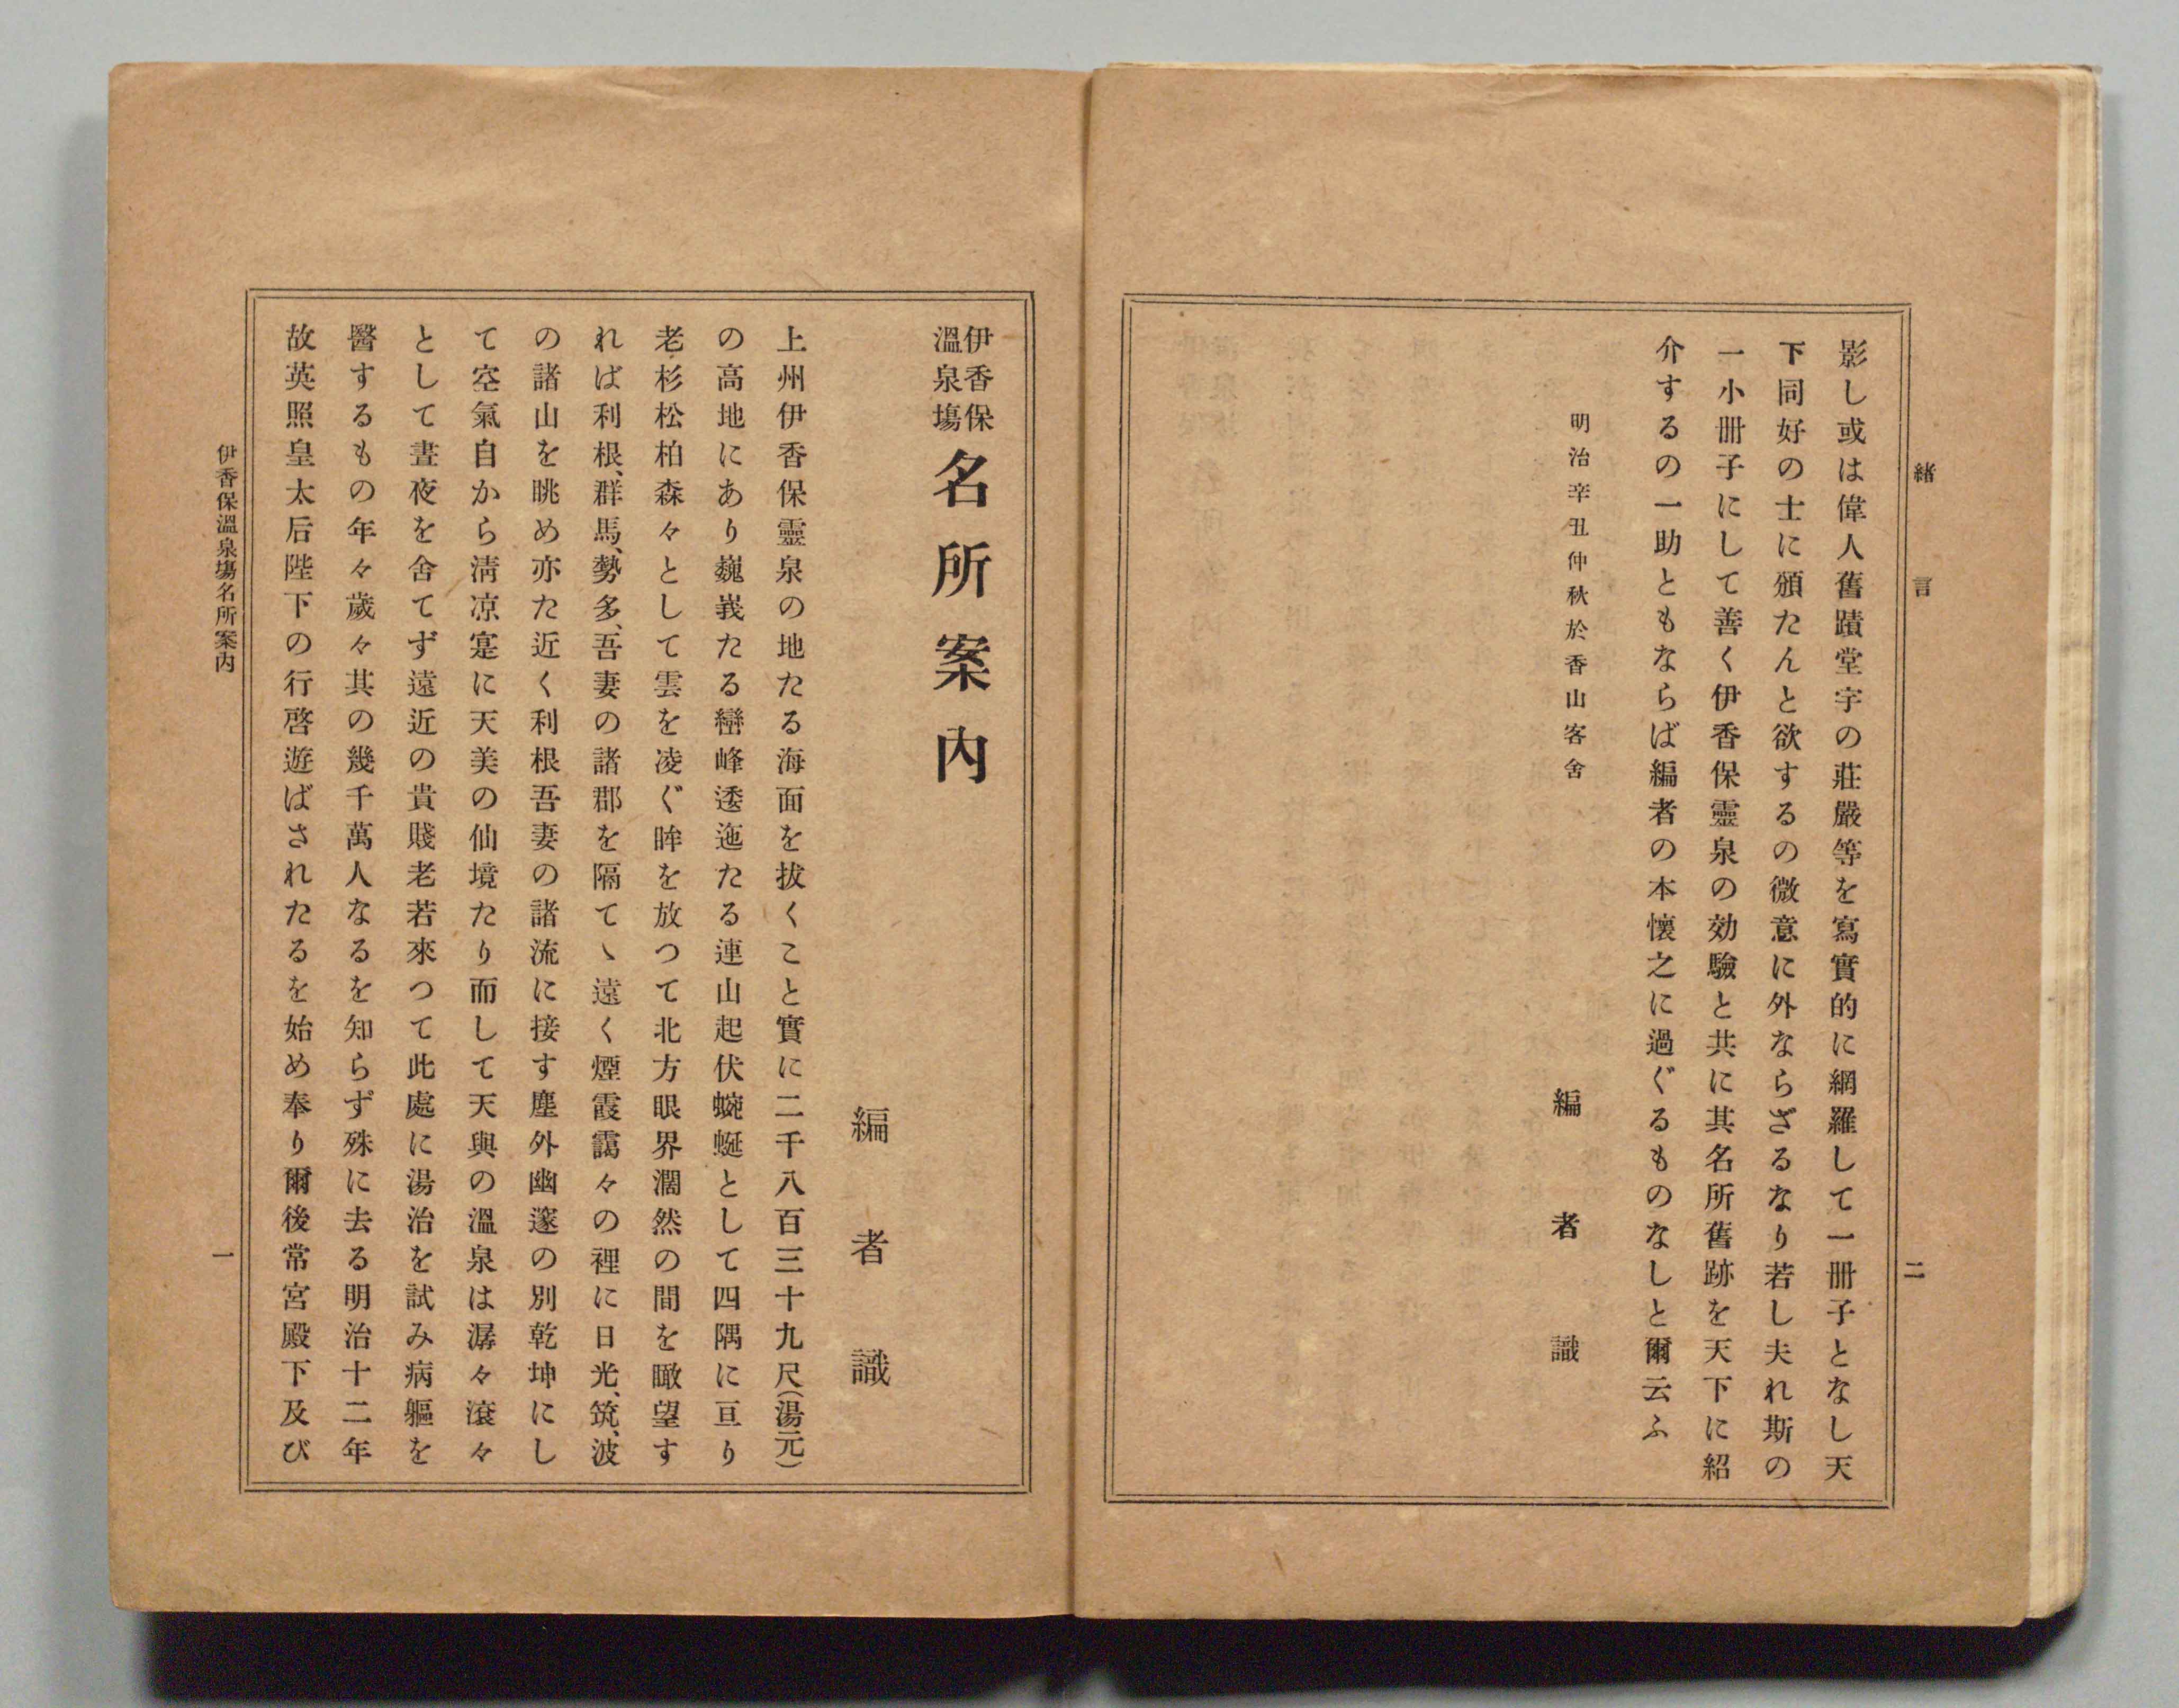 緒言
二
影し或は偉人舊蹟堂宇の莊嚴等を寫實的に網羅して一冊子となし天
下同好の士に頒たんと欲するの微意に外ならざるなり若し夫れ斯の
一小冊子にして善く伊香保靈泉の効驗と共に其名所舊跡を天下に紹
介するの一助ともならば編者の本懷之に過ぐるものなしと爾云ふ
明治辛丑仲秋於香山客舍
編者識
伊香保
溫泉塲
名所案內
編者識
上州伊香保靈泉の地たる海面を拔くこと實に二千八百三十九尺(湯元)
の高地にあり巍峩たる巒峰逶迤たる連山起伏蜿蜒として四隅に亘り
老杉松柏森々として雲を凌ぐ眸を放つて北方眼界濶然の間を瞰望す
れば利根、群馬、勢多、吾妻の諸郡を隔てゝ遠く煙霞靄々の裡に日光、筑、波
の諸山を眺め亦た近く利根吾妻の諸流に接す塵外幽邃の別乾坤にし
て空氣自から淸凉寔に天美の仙境たり而して天與の溫泉は潺々滾々
として晝夜を舍てず遠近の貴賤老若來つて此處に湯治を試み病軀を
醫するもの年々歲々其の幾千萬人なるを知らず殊に去る明治十二年
故英照皇太后陛下の行啓遊ばされたるを始め奉り爾後常宮殿下及び
伊香保溫泉塲名所案內
一